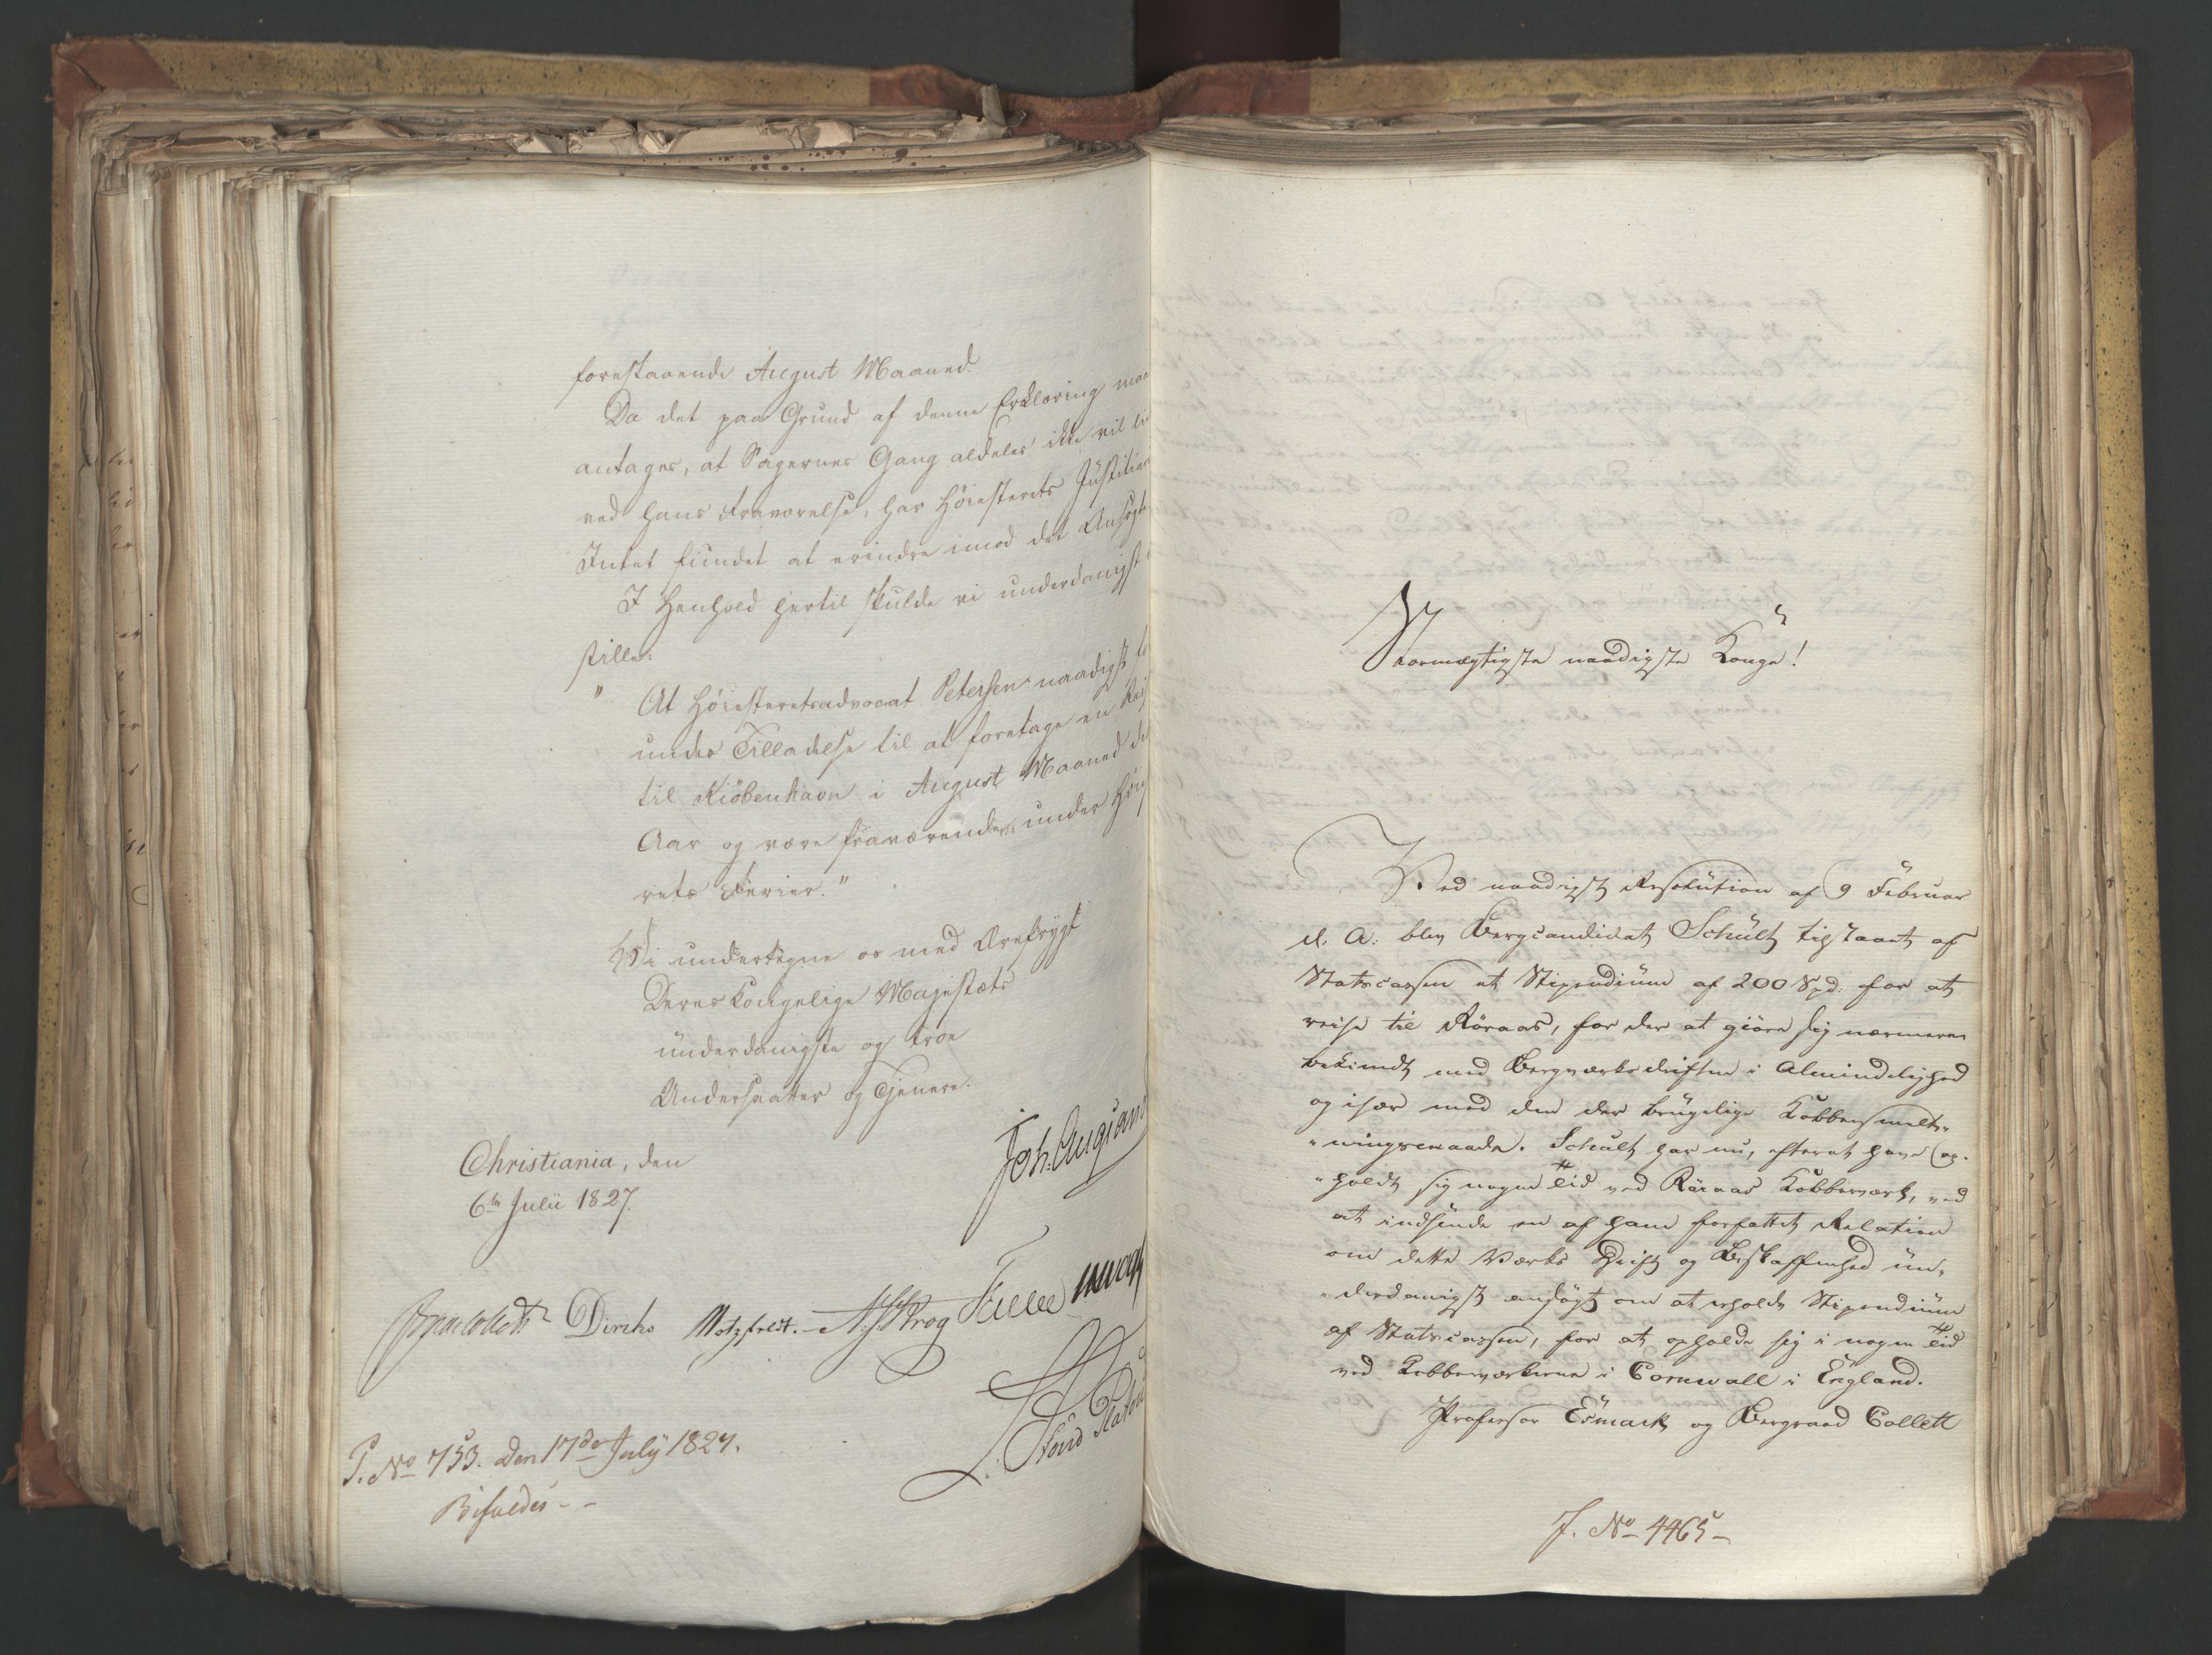 forestaaende August Maaned.
Da det paa Grund af denne Erklæring maa
antages, at Sagernes Gang aldeles ikke vil li
ved hans Fraværelse, har Høiesterets Justitiar
Intet fundet at erindre imod det Ansøgte
I Henhold hertil skulde vi underdanigst
stille:
" At Høiesteretsadvocat Petersen naadigst
undes Tilladelse til at foretage en Reis
til Kiöbenhavn i August Maaned d
Aar og være fraværende under Høie
rets Ferier."
Vi undertegne os med Ærefrygt
Deres Kongelige Majestæts
underdanigste og troe
Undersaatter og Tjenere.
Christiania, den
6te Julii 1827.
Joh: Collett
Jonas Collett Diriks Motzfeldt. A. Krog Fasting
Sivard Platou
P. No 753. den 17de July 1827.
Bifaldes - -
Stormægtigste naadigste Konge!
Ved naadigst Resolution af 9 Februar
d: A: blev Bergcandidat Schult tilstaaet af
Statscassen et Stipendium af 200 Spd: for at
reise til Röraas, for der at giöre sig nærmere
bekiendt med Bergværksdriften i Almindelighed
og især med den der brugelige Kobbersmelt-
"ningsmaade. Schult har nu, efterat have op-
"holdt sig nogen Tid ved Röraas Kobberværk, ved
at indsende en af ham forfattet Relation
om dette Værks Drift og Beskaffenhed un-
"derdanigst ansögt om at erholde Stipendium
af Statscassen, for at opholde sig i nogen Tid
ved Kobberværkerne i Cornwall i England.
Professor Esmark og Bergraad Collett
J. No 4465-